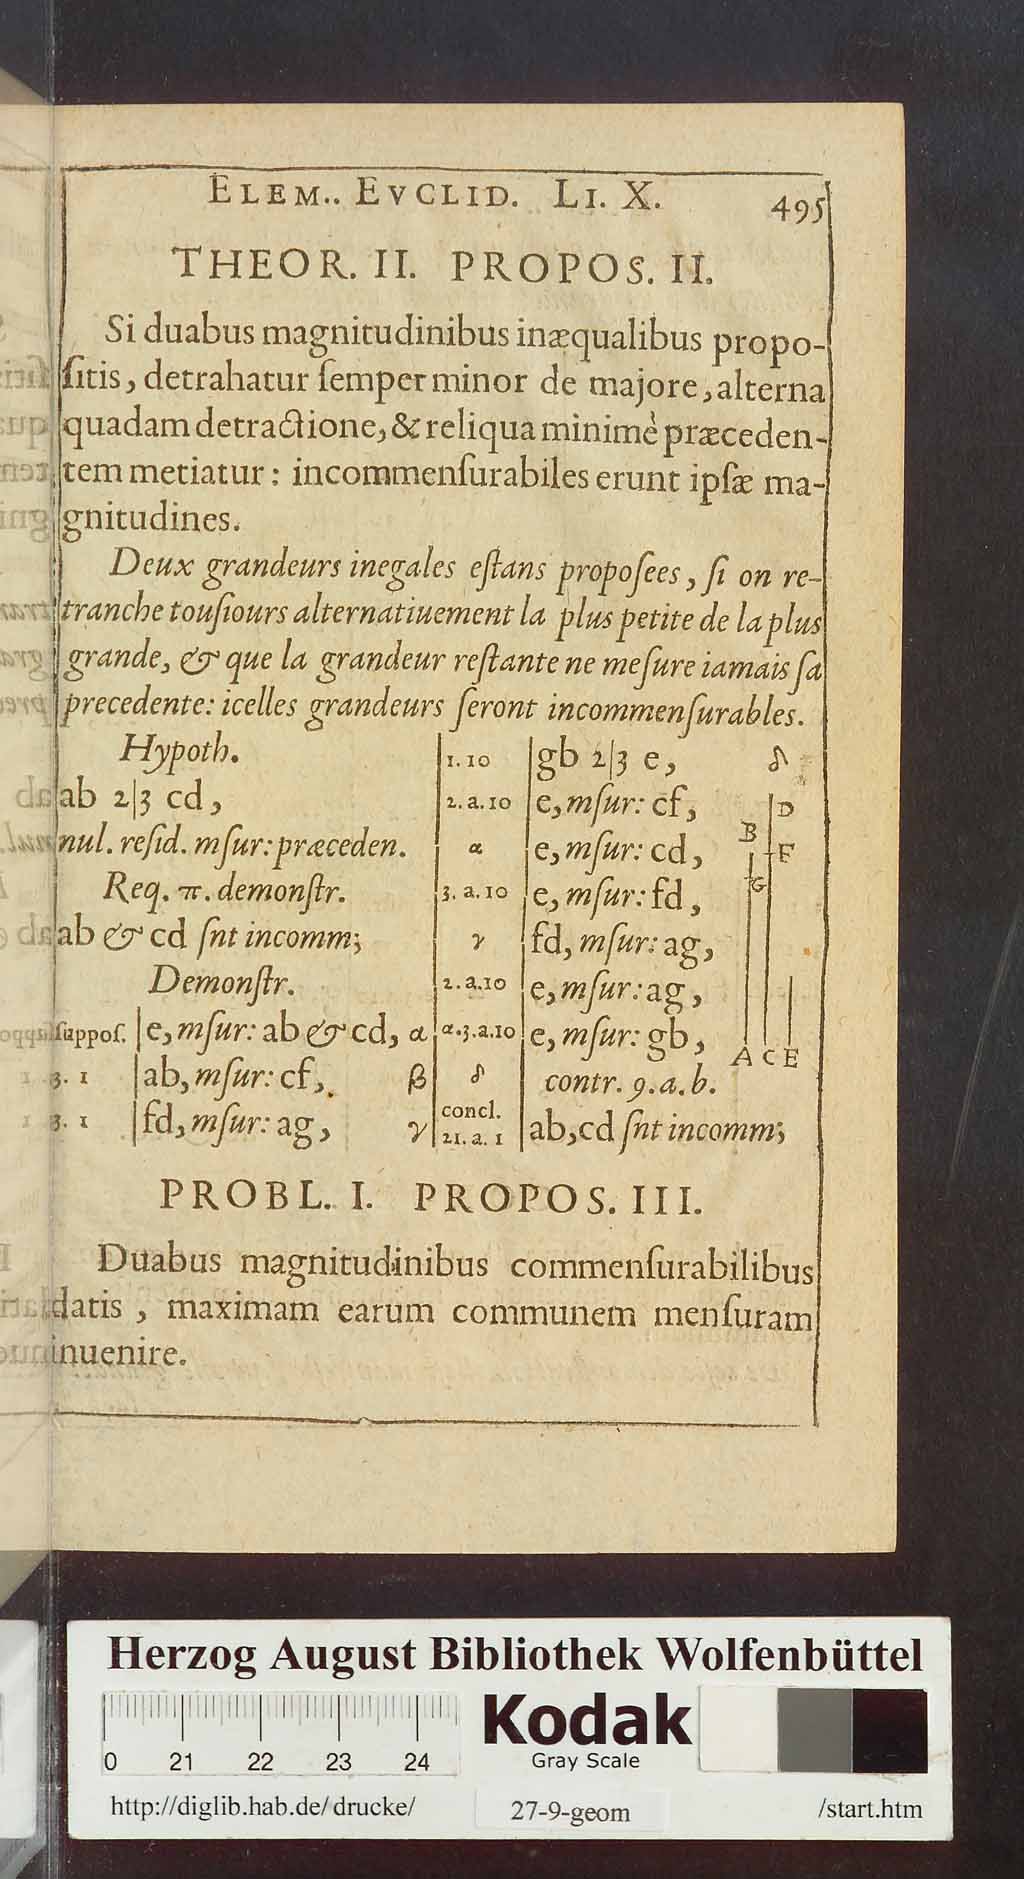 ELEM.. EVCLID. LI. X. 495
THEOR. II. PROPOS. II.
Si duabus magnitudinibus inæqualibus propo-
ſitis, detrahatur ſemper minor de majore, alterna
quadam detractione, & reliqua minimè præceden-
tem metiatur: incommenſurabiles erunt ipſæ ma-
gnitudines.
Deux grandeurs inegales eſtans propoſees, ſi on re-
tranche touſiours alternatiuement la plus petite de la plus
grande, & que la grandeur reſtante ne meſure iamais ſa
precedente: icelles grandeurs ſeront incommenſurables.
Hypoth.
ab 2|3 cd,
nul. reſid. mſur: præceden.
Req. π. demonſtr.
ab & cd ſnt incomm;
Demonſtr.
ſuppoſ. | e, mſur: ab & cd, α
3. 1 | ab, mſur: cf, β
3. 1 | fd, mſur: ag, γ
1. 10 | gb 2|3 e, δ
2. a. 10 | e, mſur: cf,
α | e, mſur: cd,
3. a. 10 | e, mſur: fd,
γ | fd, mſur: ag,
2. a. 10 | e, mſur: ag,
α. 3. a. 10 | e, mſur: gb,
δ | contr. 9. a. b.
concl.
21. a. 1 | ab, cd ſnt incomm;
D
B
F
G
A C E
PROBL. I. PROPOS. III.
Duabus magnitudinibus commenſurabilibus
datis, maximam earum communem menſuram
inuenire.
Herzog August Bibliothek Wolfenbüttel
Kodak
Gray Scale
0 21 22 23 24
http://diglib.hab.de/drucke/ 27-9-geom /start.htm